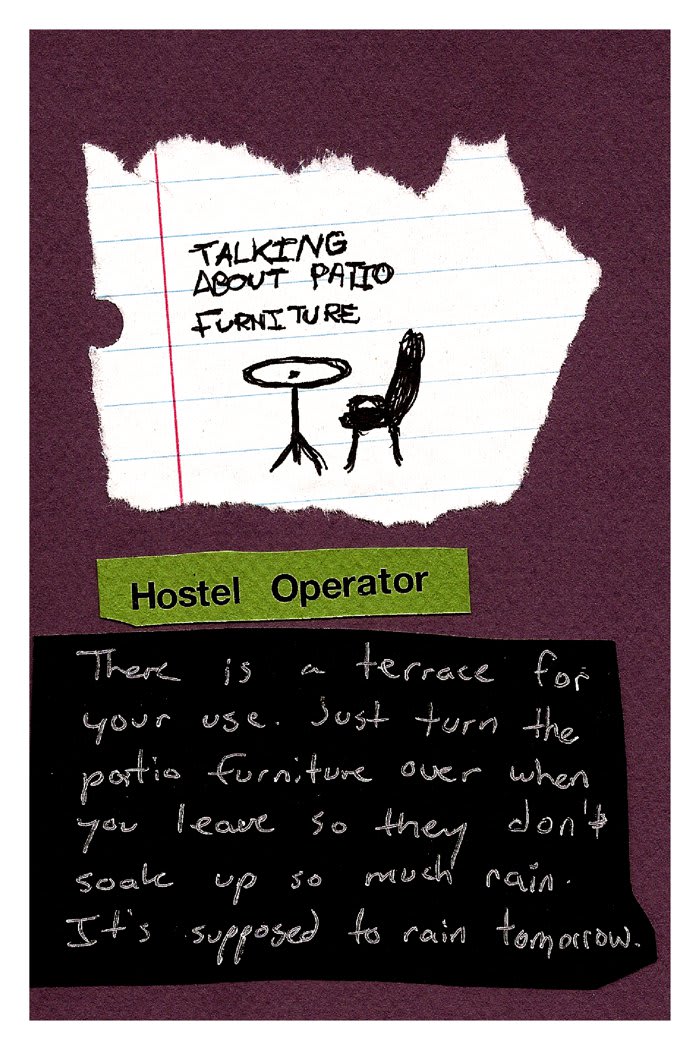 TALKING
ABOUT PATIO
FURNITURE
Hostel Operator
There is a terrace for
your use. Just turn the
patio furniture over when
you leave so they don't
soak up so much rain.
It's supposed to rain tomorrow.